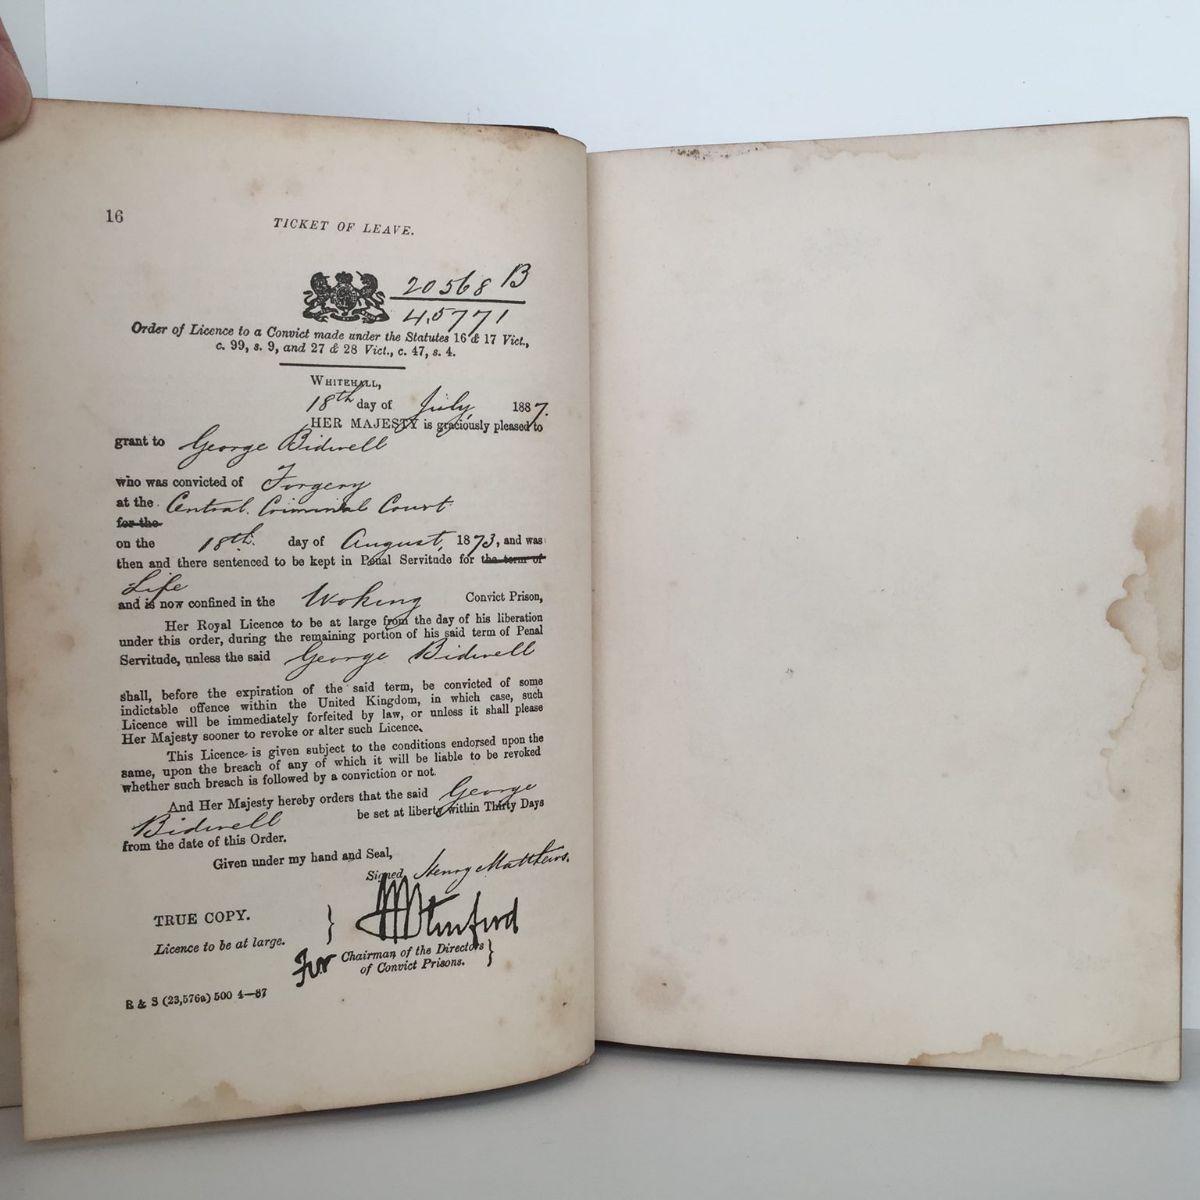 16
TICKET OF LEAVE.
20568 B
45771
Order of Licence to a Convict made under the Statutes 16 & 17 Vict.,
c. 99, s. 9, and 27 & 28 Vict., c. 47, s. 4.
WHITEHALL,
18th day of July, 1887.
HER MAJESTY is graciously pleased to
grant to George Bidwell
who was convicted of Forgery
at the Central Criminal Court
for the
on the 18th. day of August, 1873, and was
then and there sentenced to be kept in Penal Servitude for the term of
Life
and is now confined in the Woking Convict Prison,
Her Royal Licence to be at large from the day of his liberation
under this order, during the remaining portion of his said term of Penal
Servitude, unless the said George Bidwell
shall, before the expiration of the said term, be convicted of some
indictable offence within the United Kingdom, in which case, such
Licence will be immediately forfeited by law, or unless it shall please
Her Majesty sooner to revoke or alter such Licence.
This Licence is given subject to the conditions endorsed upon the
same, upon the breach of any of which it will be liable to be revoked
whether such breach is followed by a conviction or not.
And Her Majesty hereby orders that the said George
Bidwell be set at liberty within Thirty Days
from the date of this Order.
Given under my hand and Seal,
Signed, Henry Matthews.
TRUE COPY.
Licence to be at large.
For Chairman of the Directors
of Convict Prisons.
R & S (23,576a) 500 4—87